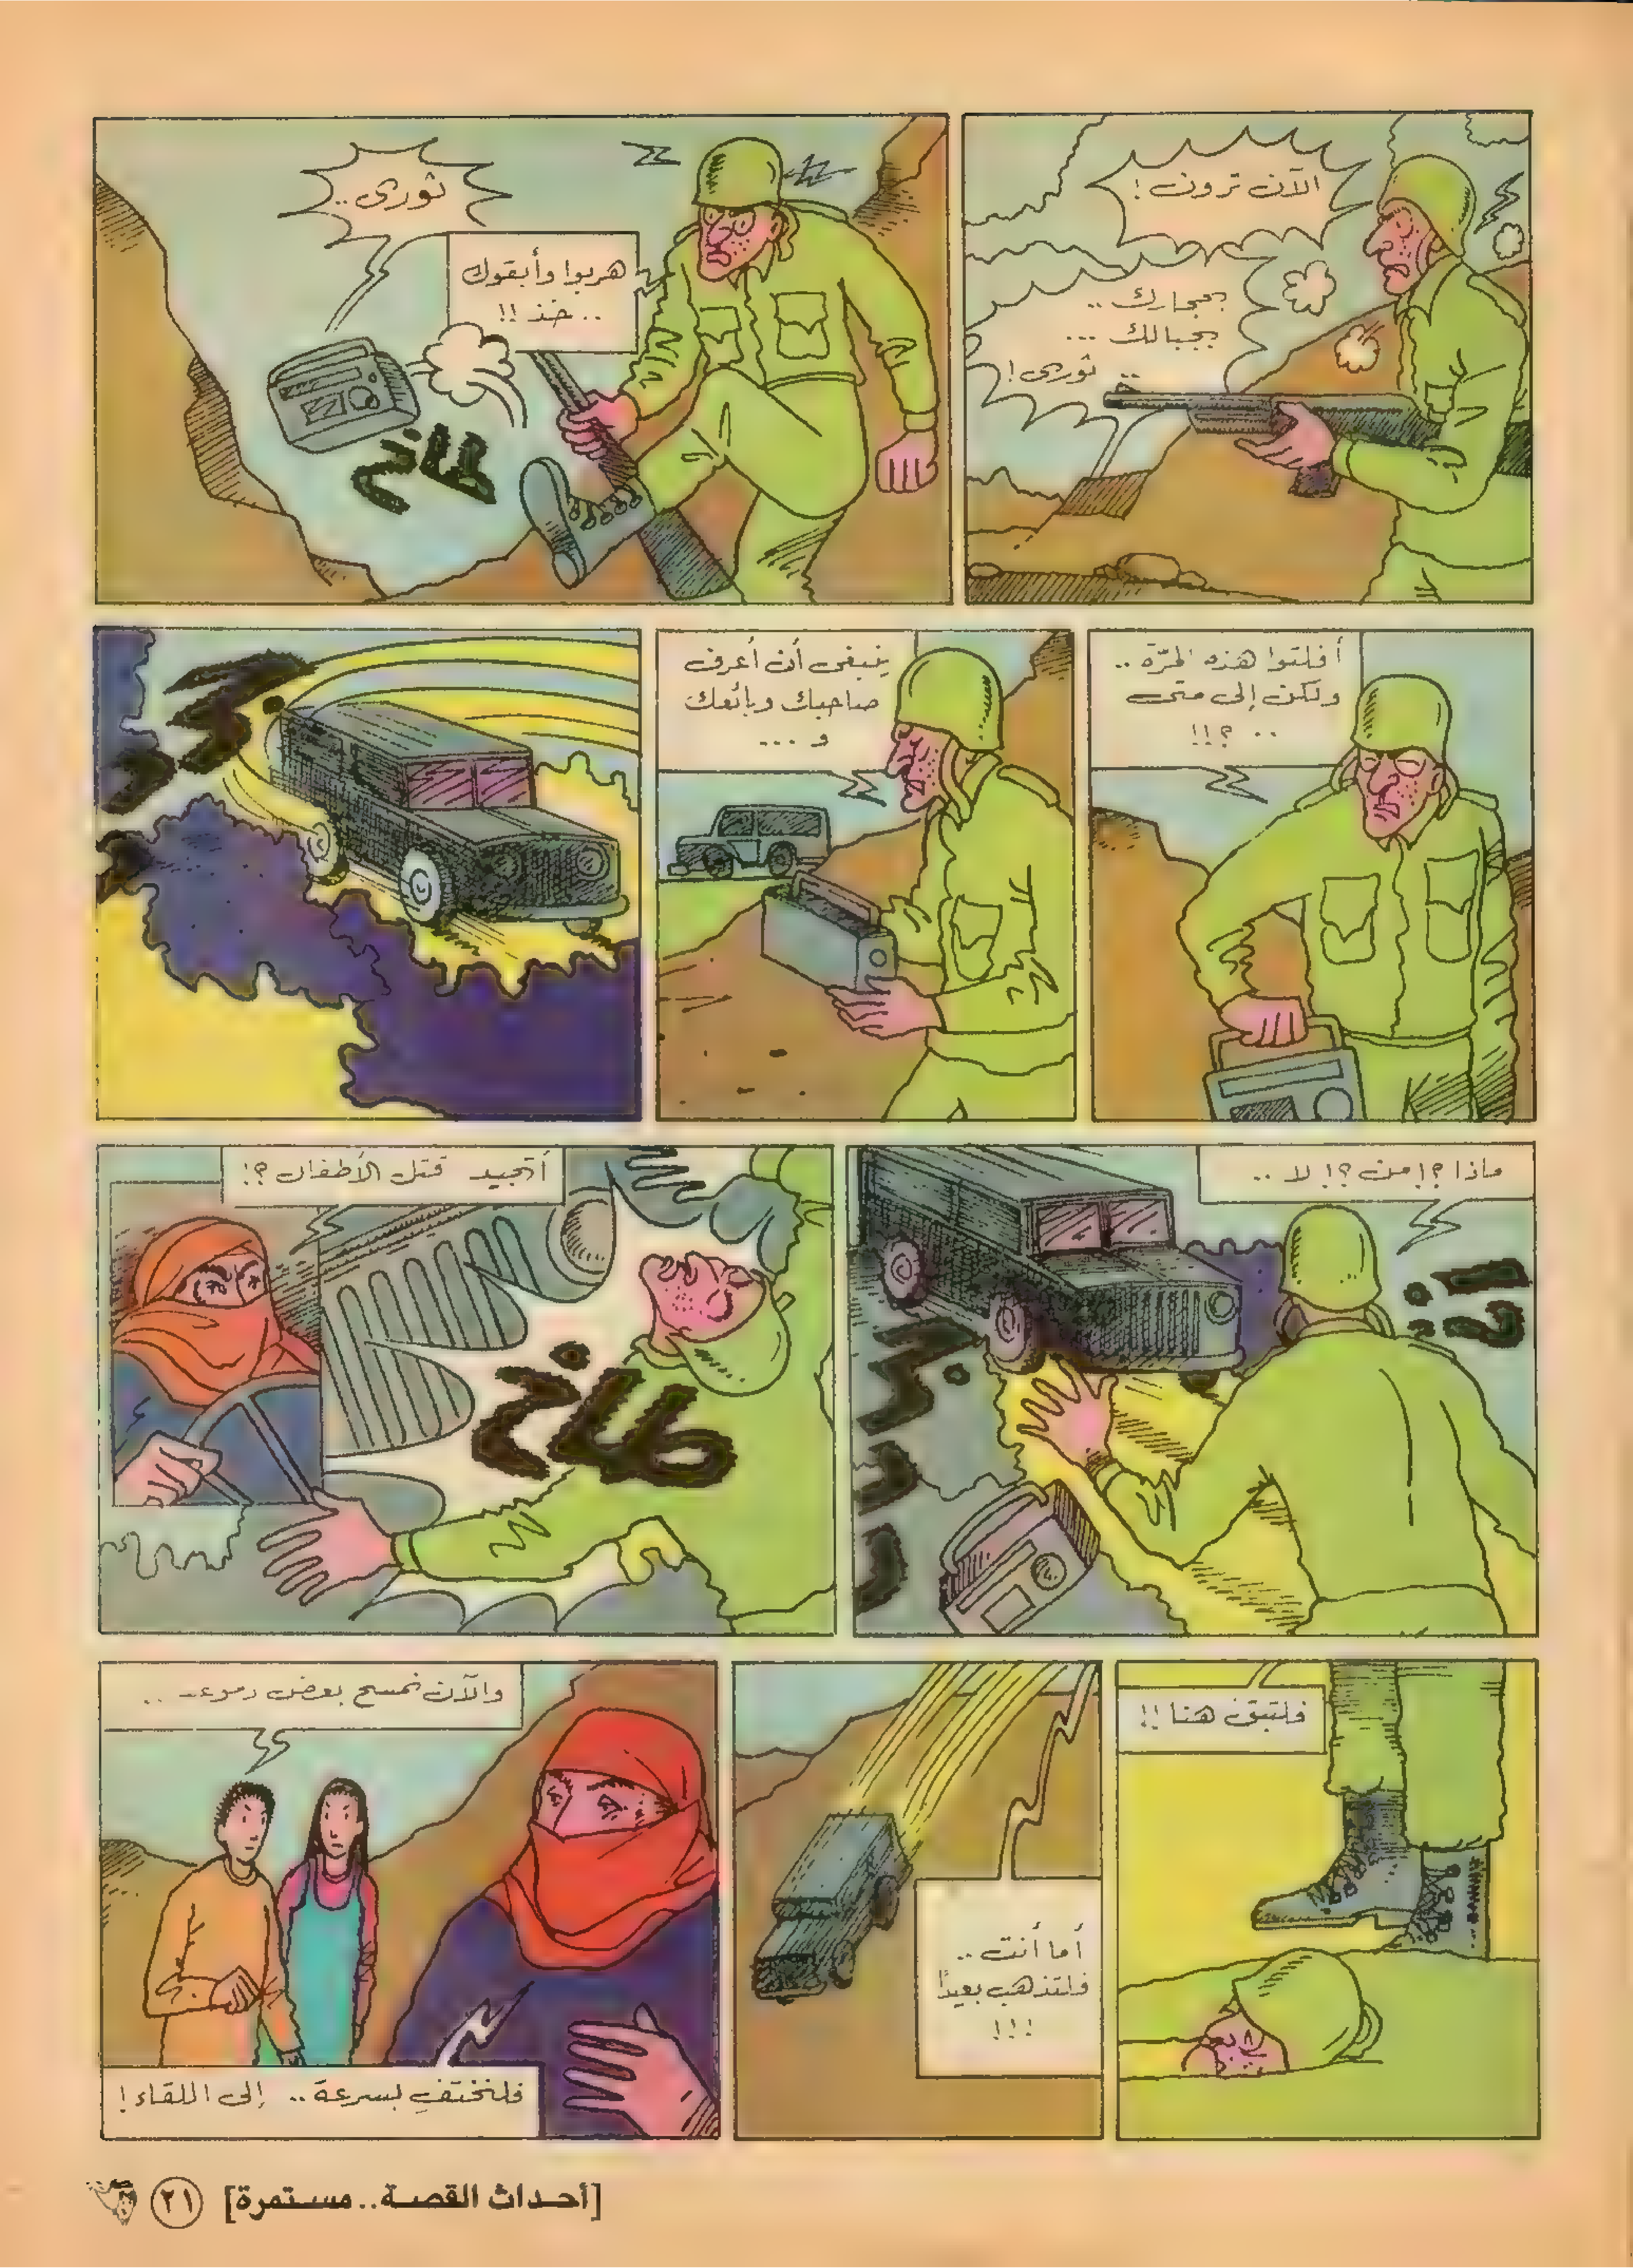 الآن ترون !
بحجارك ..
بجبالك ...
.. ثوري !
ثوري ..
هربوا وأبقوك
.. خذ !!
طاخ
أفلتوا هذه المرّة ..
ولكن إلى متى
.. ؟!!
ينبغى أن أعرف
صاحبك وبائعك
و ...
ماذا ؟! من ؟! لا ..
أتجيد قتل الأطفال ؟!
طاخ
فلتبق هنا !!
أما أنت ..
فلتذهب بعيدًا
!!!
والآن نمسح بعض دموعـ ..
فلنختفِ بسرعة .. إلى اللقاء !
[أحداث القصة.. مستمرة]
٢١